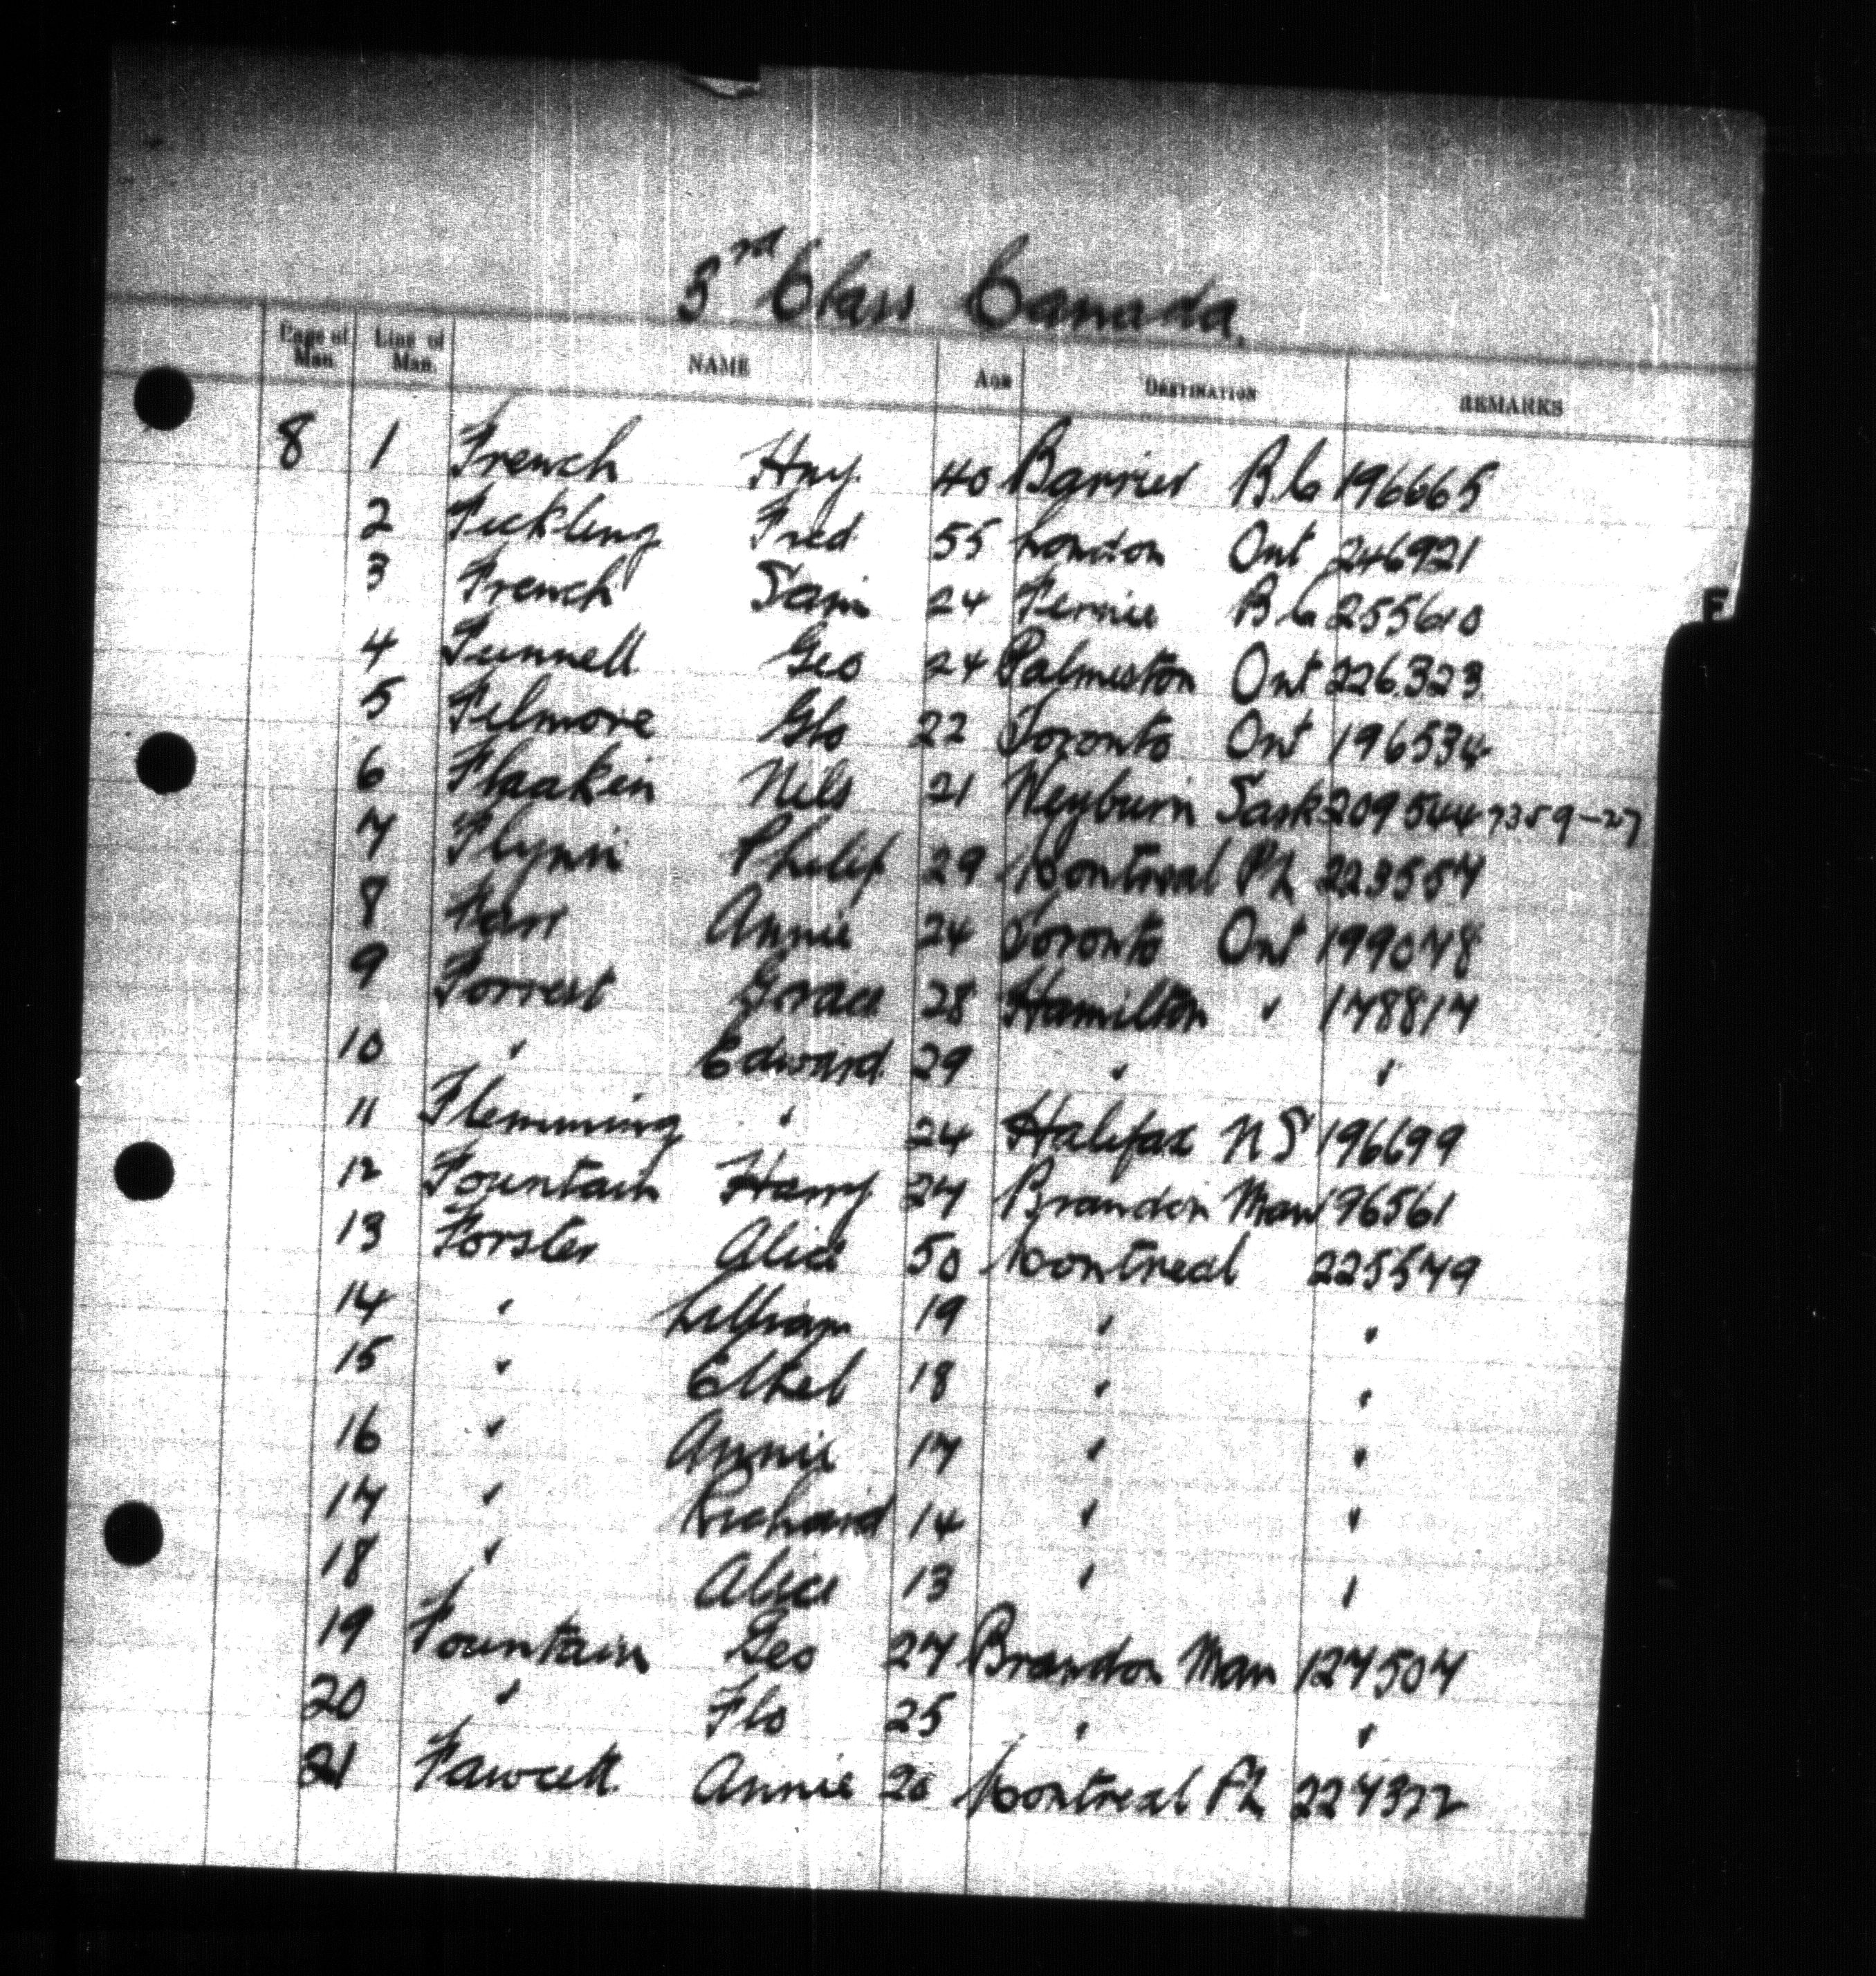 3rd Class Canada.
Page of Man. Line of Man. NAME AGE DESTINATION REMARKS
8 1 French Hny. 40 Barrier B C 196665
2 Fickling Fred 55 London Ont 246921
3 French Sam 24 Fernie B C 255610
F
4 Funnell Geo 24 Palmeston Ont 226323
5 Filmore Glo 22 Toronto Ont 196534
6 Flaaken Nils 21 Weyburn Sask 209544 7359-27
7 Flynn Philip 29 Montreal PQ 223557
8 Farr Annie 24 Toronto Ont 199078
9 Forrest Grace 28 Hamilton " 178817
10 " Edward 29 " "
11 Flemming " 24 Halifax N S 196699
12 Fountain Harry 27 Brandon Man 196561
13 Forster Alice 50 Montreal 225579
14 " Lillian 19 " "
15 " Ethel 18 " "
16 " Annie 17 " "
17 " Richard 14 " "
18 " Alice 13 " "
19 Fountain Geo 27 Brandon Man 127507
20 " Flo 25 " "
21 Fawcett Annie 26 Montreal PQ 227372